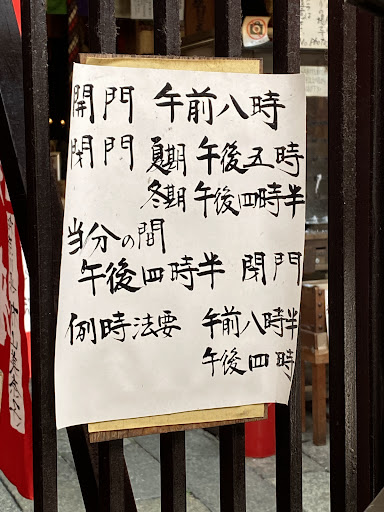 開門 午前八時
閉門 夏期 午後五時
冬期 午後四時半
当分の間
午後四時半 閉門
例時法要 午前八時半
午後四時